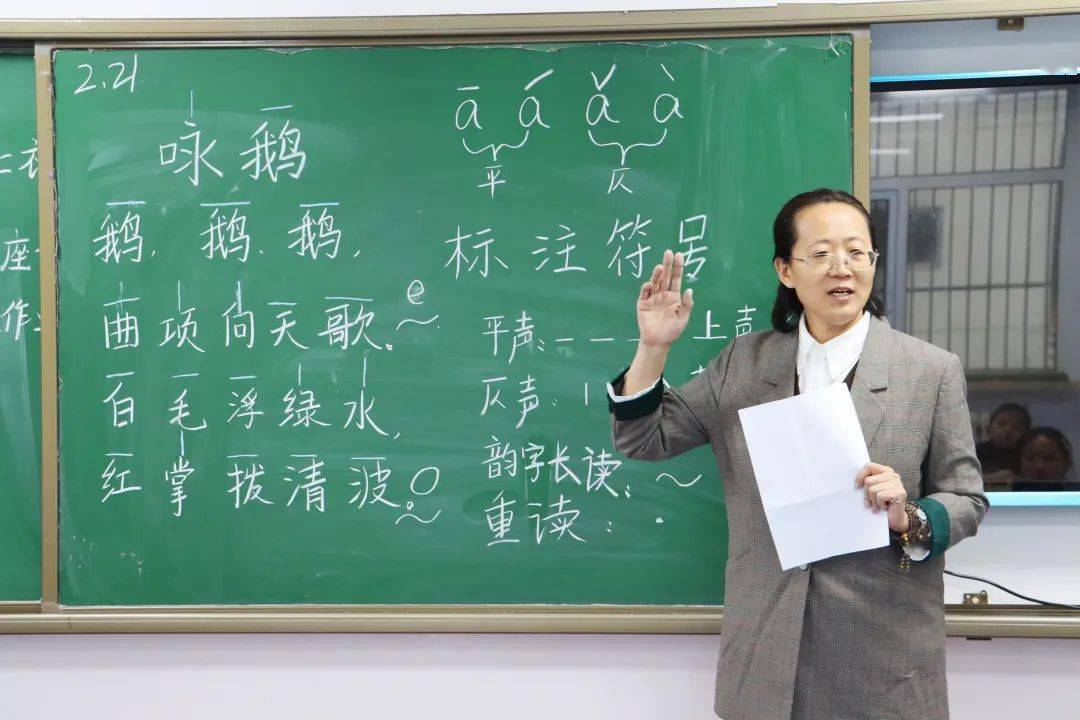 2.21
咏鹅
鹅,鹅、鹅,
曲项向天歌。 e ~
白毛浮绿水,
红掌拨清波。 o ~
ā á ǎ à
平 仄
标注符号
平声:--- 上声
仄声:|
韵字长读:~
重读:·
座
作